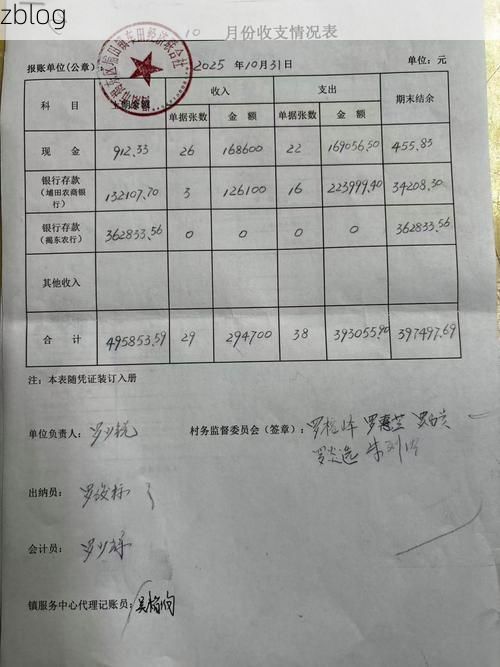 zblog
10 月份收支情况表
报账单位(公章): 2025 年10月31日 单位: 元
科 目 上期余额 收入 支出 期末结余
单据张数 金 额 单据张数 金 额
现 金 912.33 26 168600 22 169056.50 455.83
银行存款(埔田农商银行) 132107.70 3 126100 16 223999.40 34208.30
银行存款(揭东农行) 362833.56 0 0 0 0 362833.56
其他收入
合 计 495853.59 29 294700 38 393055.90 397497.69
注: 本表随凭证装订入册
单位负责人:
村务监督委员会(签章):
出纳员:
会计员:
镇服务中心代理记账员: